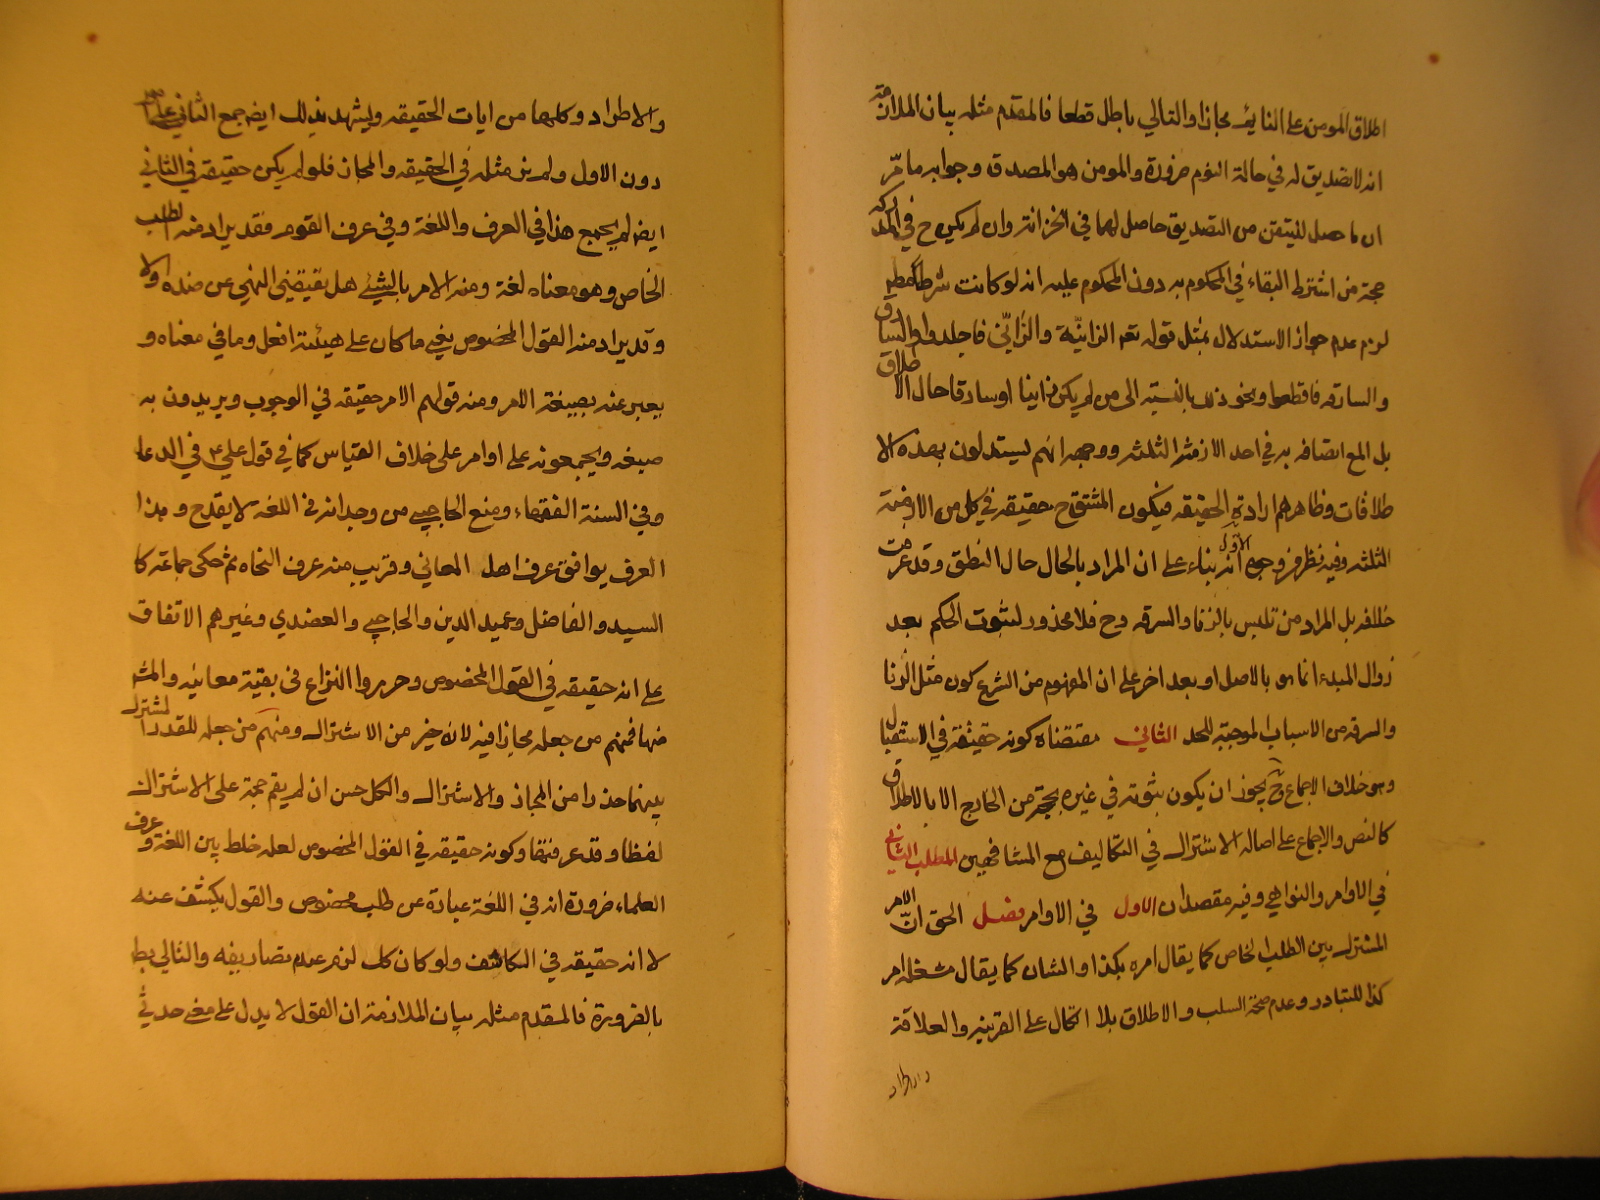 اطلاق المومن على النايم مجازا والتالي باطل قطعا فالمقدم مثله بيان الملازمة
انه لا تصديق له في حالة النوم ضرورة والمومن هو المصدق وجوابه ما مرّ
ان ما حصل للتيقن من التصديق حاصل لهما في الخزانة وان لم يكن ح في المدركه
حجة من اشترط البقاء في المحكوم به دون المحكوم عليه انه لو كانت شرطا مطم
لزم عدم جواز الاستدلال بمثل قوله تعم الزانيّة والزّاني فاجلدوا والسارق
والسارقه فاقطعوا ونحو ذلك بالنسبة الى من لم يكن زانيا او سارقا حال الاطلاق
بل المع اتصافه به في احد الازمنة الثلثه ووجهه انهم يستدلون بهذه الا
طلاقات وظاهرهم ارادة الحقيقه فيكون المشتق ح حقيقه في كل من الازمنة
الثلثه وفيه نظر من وجهين الاول انه بناء على ان المراد بالحال حال النطق وقد عرفت
خلافه بل المراد من تلبس بالزنا والسرقه وح فلا محذور لثبوت الحكم بعد
زوال المبدء انما هو بالاصل او بعد اخر على ان المفهوم من الشرع كون مثل الزنا
والسرقه من الاسباب الموجبة للحد الثاني مقتضاه كونه حقيقة في الاستقبال
وهو خلاف الاجماع فح يجوز ان يكون ثبوته في غيره بحجة من الخارج الا بالاطلاق
كالنص والاجماع على اصاله الاشتراك في التكاليف مع المشافهين المطلب الثاني
في الاوامر والنواهي وفيه مقصدان الاول في الاوامر فصل الحق انّ الامر
المشترك بين الطلب الخاص كما يقال امره بكذا والشان كما يقال شغله امر
كذا للتبادر وعدم صحة السلب والاطلاق بلا اتكال على القرينه والعلاقة
والاطراد
والاطراد وكلها من ايات الحقيقه ويشهد بذلك ايضا جمع الثاني على امور
دون الاول ولم نر مثله في الحقيقه والمجاز فلو لم يكن حقيقة في الثاني
ايضا لم يجمع هذا في العرف واللغة وفي عرف القوم فقد يراد منه الطلب
الخاص وهو معناه لغة ومنه الامر بالشيئ هل يقتضي النهي عن ضده اولا
وقد يراد منه القول المخصوص يغني ما كان على هيئة افعل وما في معناه و
يعبر عنه بصيغة الامر ومنه قولهم الامر حقيقه في الوجوب ويريدون به
صيغه ويجمعونه على اوامر على خلاف القياس كما في قول علي ع في الدعا
وفي السنة الفقهاء ومنع الحاجبي من وجدانه في اللغة لا يقدح وهذا
العرف يوافق عرف اهل المعاني وقريب منه عرف النحاه ثم حكى جماعة كا
السيد والفاضل وعميد الدين والحاجبي والعضدي وغيرهم الاتفاق
على انه حقيقه في القول المخصوص وحرروا النزاع في بقية معانيه والمش
منها فمنهم من جعله مجازا فيه لانه خير من الاشتراك ومنهم من جعله للقدر المشترك
بينهما حذرا من المجاز والاشتراك والكل حسن ان لم يقم حجة على الاشتراك
لفظا وقد عرفتها وكونه حقيقه في القول المخصوص لعله خلط بين اللغة وعرف
العلماء ضرورة انه في اللغة عبارة عن طلب مخصوص والقول يكشف عنه
لا انه حقيقه في الكاشف ولو كان كل لزم عدم تصاريفه والتالي بط
بالضرورة فالمقدم مثله بيان الملازمة ان القول لا يدل على معنى حدثي